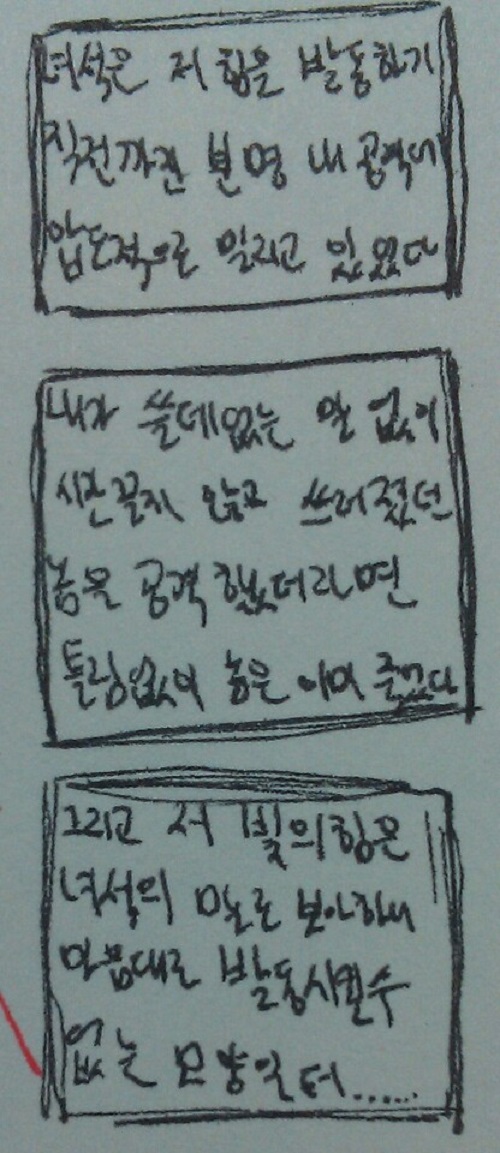 녀석은 저 힘을 발동하기
직전까진 분명 내 공격에
압도적으로 밀리고 있었다
내가 쓸데없는 말 없이
시간 끌지 않고 쓰러졌던
놈을 공격했더라면
틀림없이 놈은 이미 죽었다
그리고 저 빛의 힘은
녀석의 말로 보아하니
마음대로 발동시킬 수
없는 모양일 터......